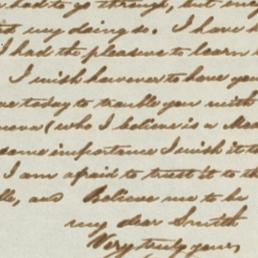 had to go through, but
my doing so. I have
I had the pleasure to learn
I wish however to have you
me today to trouble you with
(who I believe is a
some importance I wish it to
I am afraid to trust it to th
and Believe me to be
my dear Smith
Very truly yours